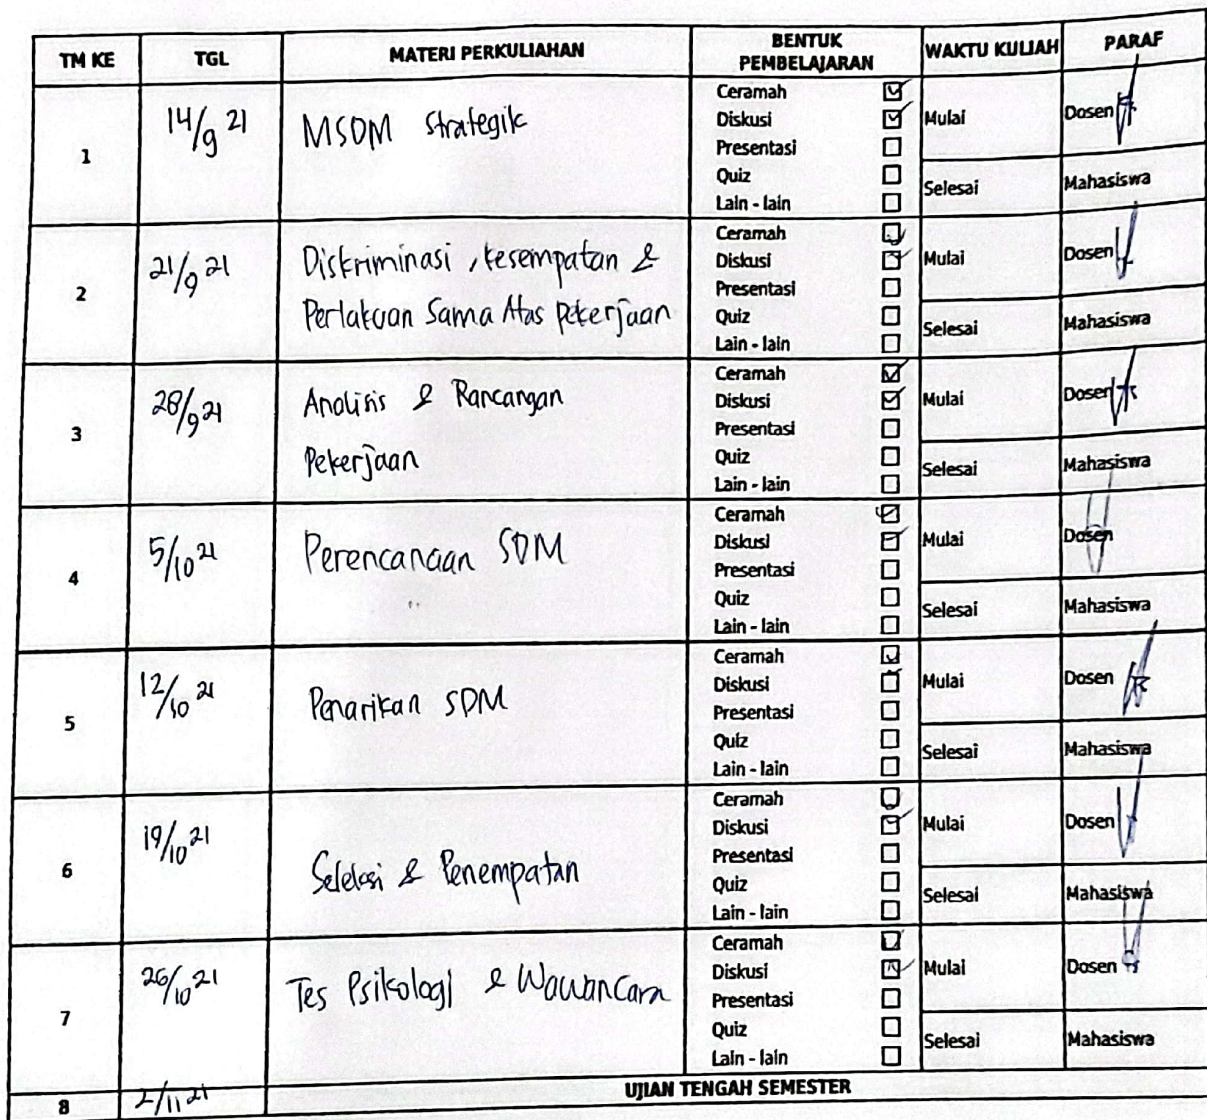 TM KE TGL MATERI PERKULIAHAN BENTUK PEMBELAJARAN WAKTU KULIAH PARAF
1 14/9 21 MSDM Strategik
Ceramah
Diskusi
Presentasi
Quiz
Lain - lain
Mulai
Selesai
Dosen
Mahasiswa
2 21/9 21 Diskriminasi, kesempatan &
Perlakuan Sama Atas Pekerjaan
Ceramah
Diskusi
Presentasi
Quiz
Lain - lain
Mulai
Selesai
Dosen
Mahasiswa
3 28/9 21 Analisis & Rancangan
Pekerjaan
Ceramah
Diskusi
Presentasi
Quiz
Lain - lain
Mulai
Selesai
Dosen
Mahasiswa
4 5/10 21 Perencanaan SDM
Ceramah
Diskusi
Presentasi
Quiz
Lain - lain
Mulai
Selesai
Dosen
Mahasiswa
5 12/10 21 Penarikan SDM
Ceramah
Diskusi
Presentasi
Quiz
Lain - lain
Mulai
Selesai
Dosen
Mahasiswa
6 19/10 21 Seleksi & Penempatan
Ceramah
Diskusi
Presentasi
Quiz
Lain - lain
Mulai
Selesai
Dosen
Mahasiswa
7 26/10 21 Tes Psikologi & Wawancara
Ceramah
Diskusi
Presentasi
Quiz
Lain - lain
Mulai
Selesai
Dosen
Mahasiswa
8 2/11 21 UJIAN TENGAH SEMESTER